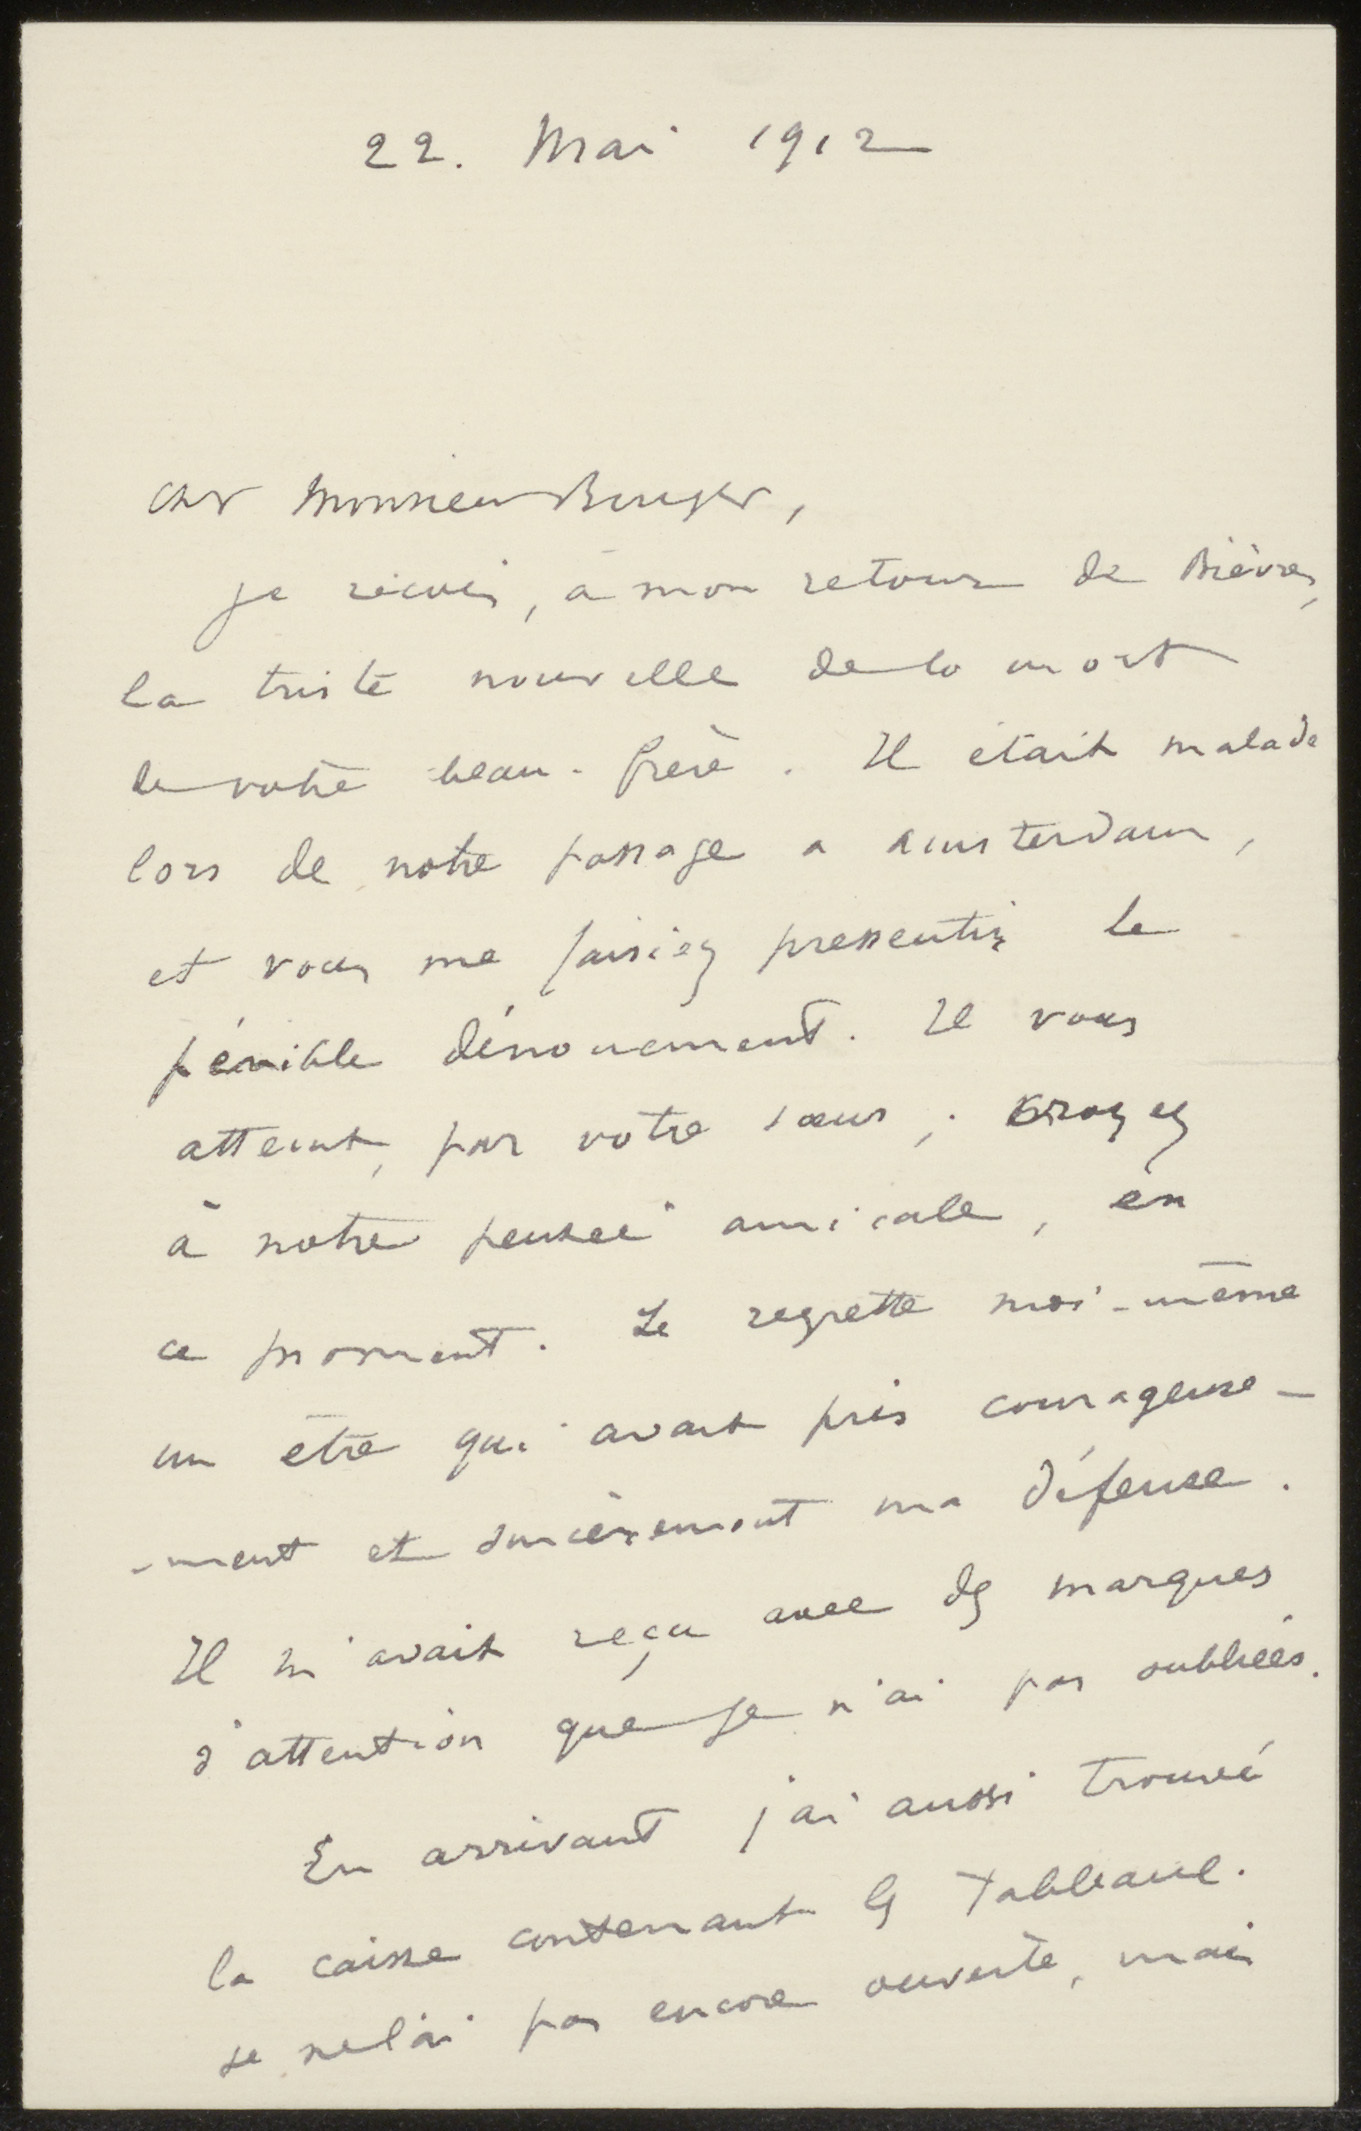 22. Mai 1912
cher Monsieur Bonger,
je reçois, à mon retour de Bièvres,
la triste nouvelle de la mort
de votre beau-frère. Il était malade
lors de notre passage a amsterdam,
et vous me faisiez pressentir le
pénible dénouement. Il vous
atteint, par votre sœur ; croyez
à notre pensée amicale, en
ce moment. Je regrette moi-même
un être qui avait pris courageuse-
-ment et sincèrement ma défense.
Il m'avait reçu avec des marques
d'attention que je n'ai pas oubliées.
En arrivant j'ai aussi trouvé
la caisse contenant les tableaux.
je ne l'ai pas encore ouverte, mais